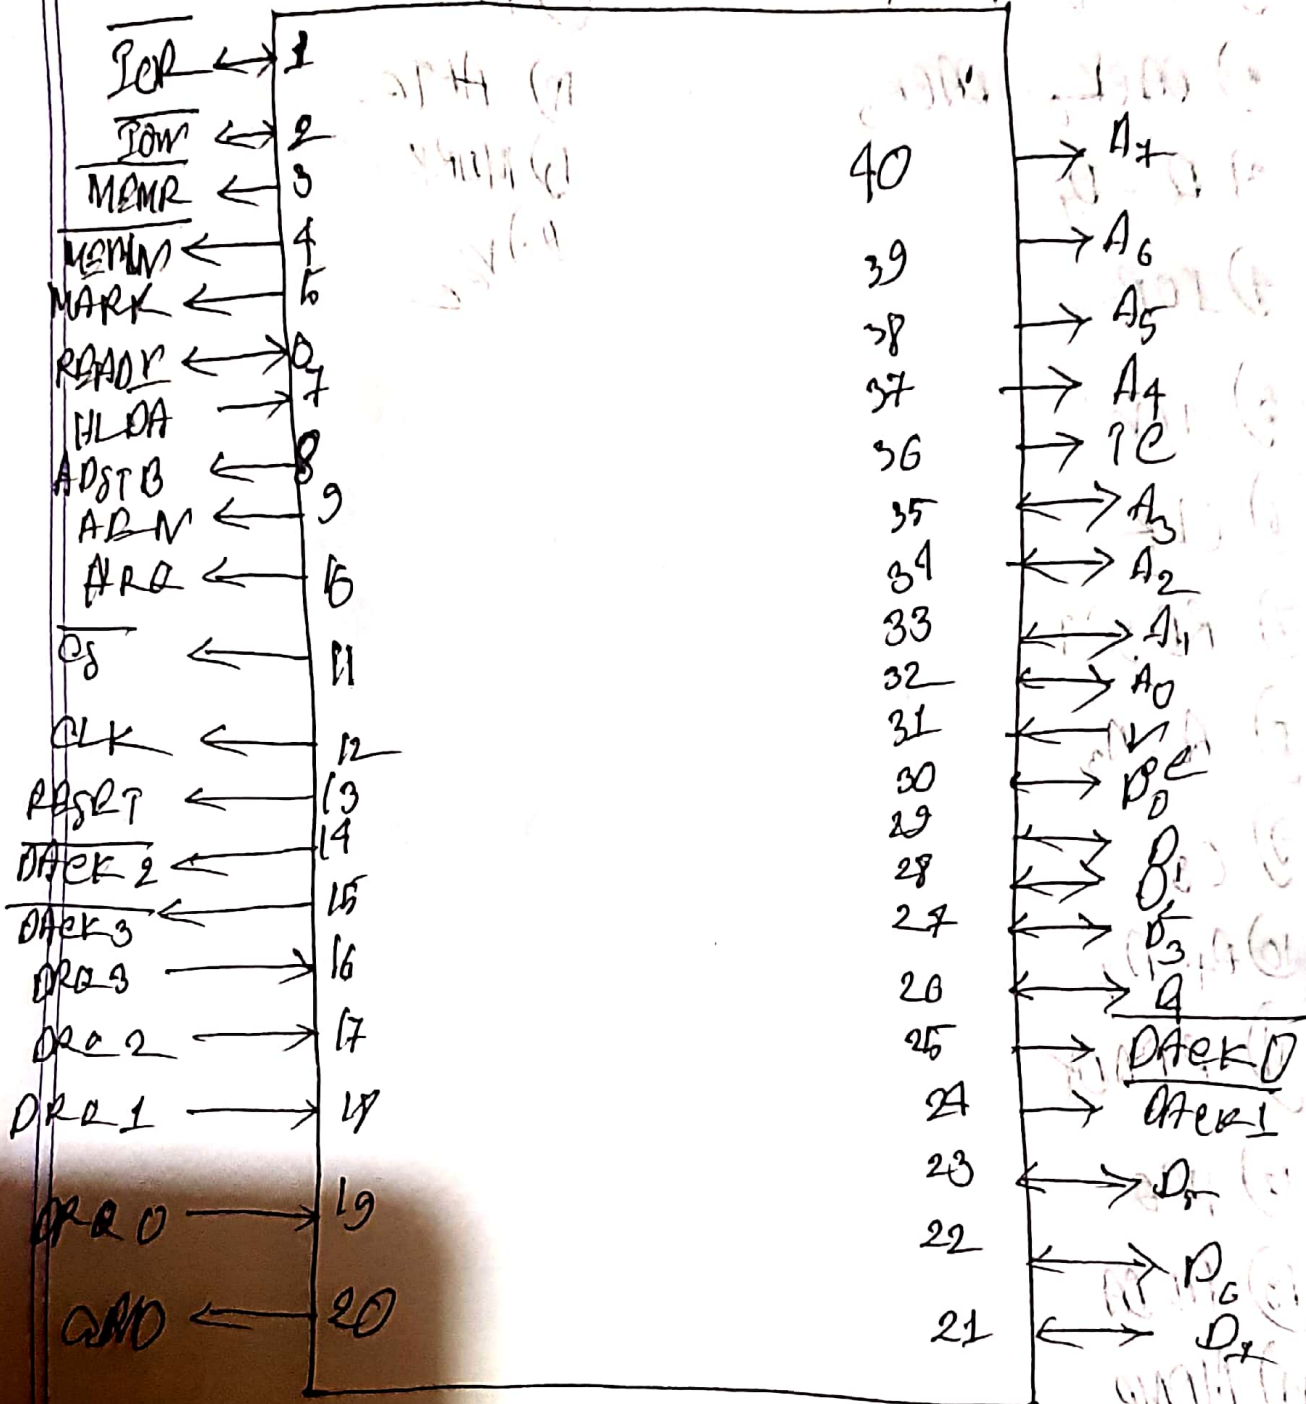 I̅O̅R̅ 1
I̅O̅W̅ 2
M̅E̅M̅R̅ 3
M̅E̅M̅W̅ 4
MARK 5
READY 6
HLDA 7
ADSTB 8
AEN 9
HRQ 10
C̅S̅ 11
CLK 12
RESET 13
D̅A̅C̅K̅ 2 14
D̅A̅C̅K̅ 3 15
DRQ 3 16
DRQ 2 17
DRQ 1 18
DRQ 0 19
GND 20
40 A7
39 A6
38 A5
37 A4
36 TC
35 A3
34 A2
33 A1
32 A0
31 Vcc
30 D0
29 D1
28 D
27 D3
26 D4
25 D̅A̅C̅K̅ 0
24 D̅A̅C̅K̅ 1
23 D5
22 D6
21 D7